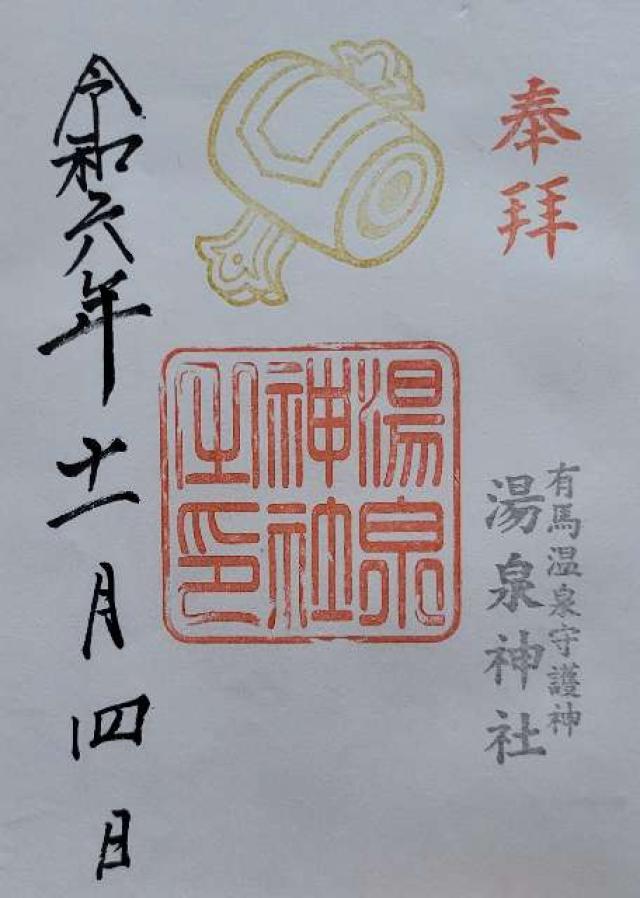 奉拝
有馬温泉守護神
湯泉神社
湯泉
神社
之印
令和六年十一月四日